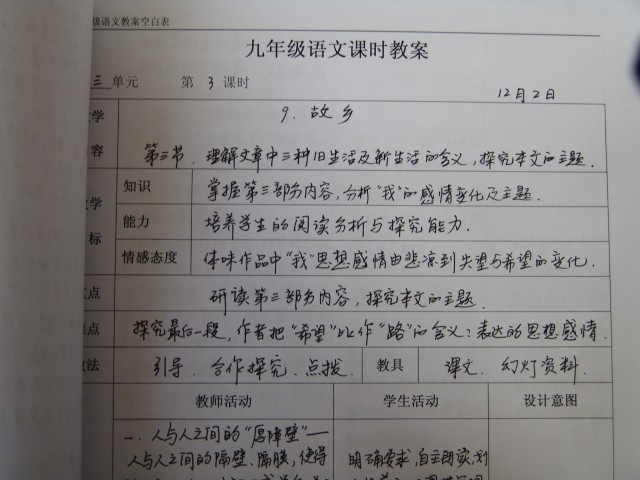 级语文教案空白表
九年级语文课时教案
三 单元 第 3 课时
12月2日
学 9. 故乡
容 第三节. 理解文章中三种旧生活及新生活的含义, 探究本文的主题.
知识 掌握第三部分内容, 分析"我"的感情变化及主题.
学
能力 培养学生的阅读分析与探究能力.
标
情感态度 体味作品中"我"思想感情由悲凉到失望与希望的变化.
点 研读第三部分内容, 探究本文的主题.
点 探究最后一段, 作者把"希望"比作"路"的含义: 表达的思想感情.
法 引导. 合作探究. 点拨. 教具 课文. 幻灯资料.
教师活动 学生活动 设计意图
一. 人与人之间的"厚障壁"—
人与人之间的隔壁、隔膜, 使得 明确要求, 自主朗读, 划